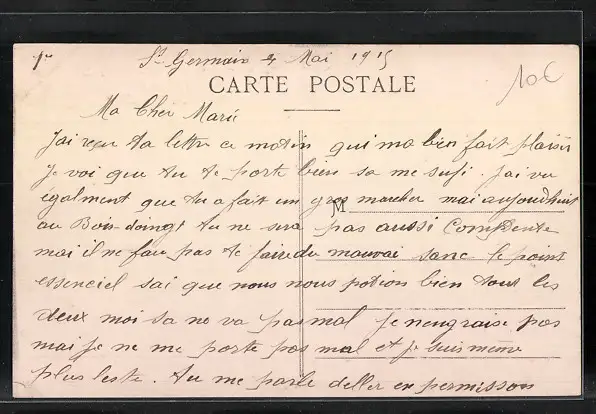 1er
St Germain 4 Mai 1915
10€
CARTE POSTALE
Ma Cher Marii
J'ai reçu ta lettre ce matin qui ma bien fait plaisir
je voi que tu te porte bien sa me sufi. J'ai vu
également que tu a fait un gros marcher mai aujourdhuit
au Bois tu ne sera pas aussi Compdente
M
mai il ne fau pas te faire du mauvai sanc le point
essenciel sai que nous nous portion bien tout les
deux moi sa ne va pas mal je nengraise pas
mai je ne me porte pas mal et je suis même
plus leste. tu me parle deller en permisson